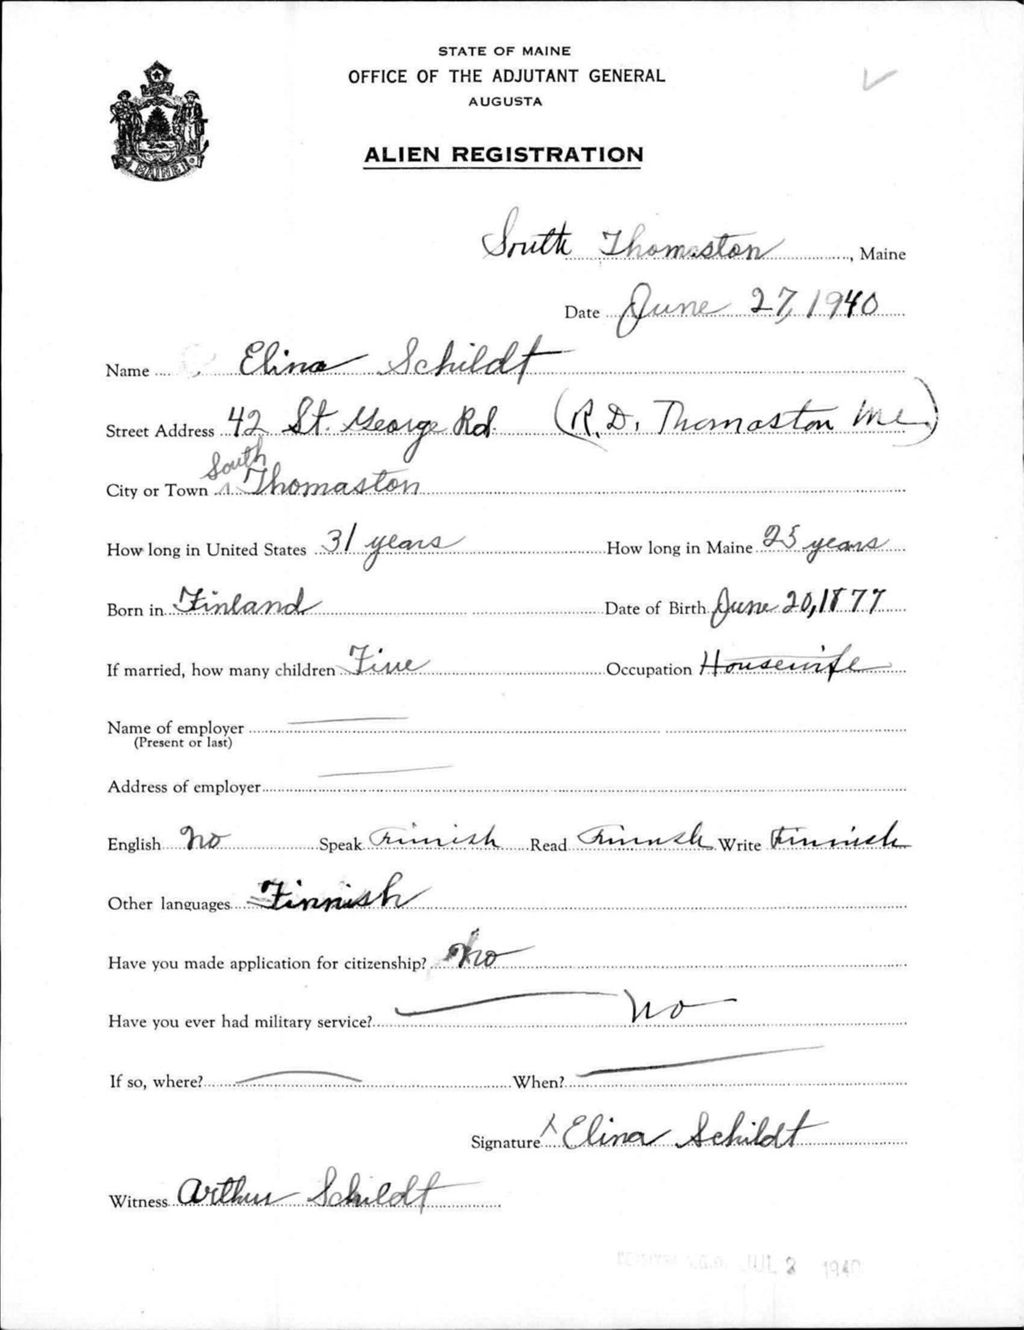 STATE OF MAINE
OFFICE OF THE ADJUTANT GENERAL
AUGUSTA
ALIEN REGISTRATION
MAINE
South Thomaston, Maine
Date June 27, 1940
Name Elina Schildt
Street Address 42 St. George Rd. (R.D. Thomaston Me.)
City or Town South Thomaston
How long in United States 31 years How long in Maine 25 years
Born in Finland Date of Birth June 20, 1877
If married, how many children Five Occupation Housewife
Name of employer
(Present or last)
Address of employer
English No Speak Finnish Read Finnish Write Finnish
Other languages Finnish
Have you made application for citizenship? No
Have you ever had military service? No
If so, where? When?
Signature X Elina Schildt
Witness Arthur Schildt
JUL 2 1940